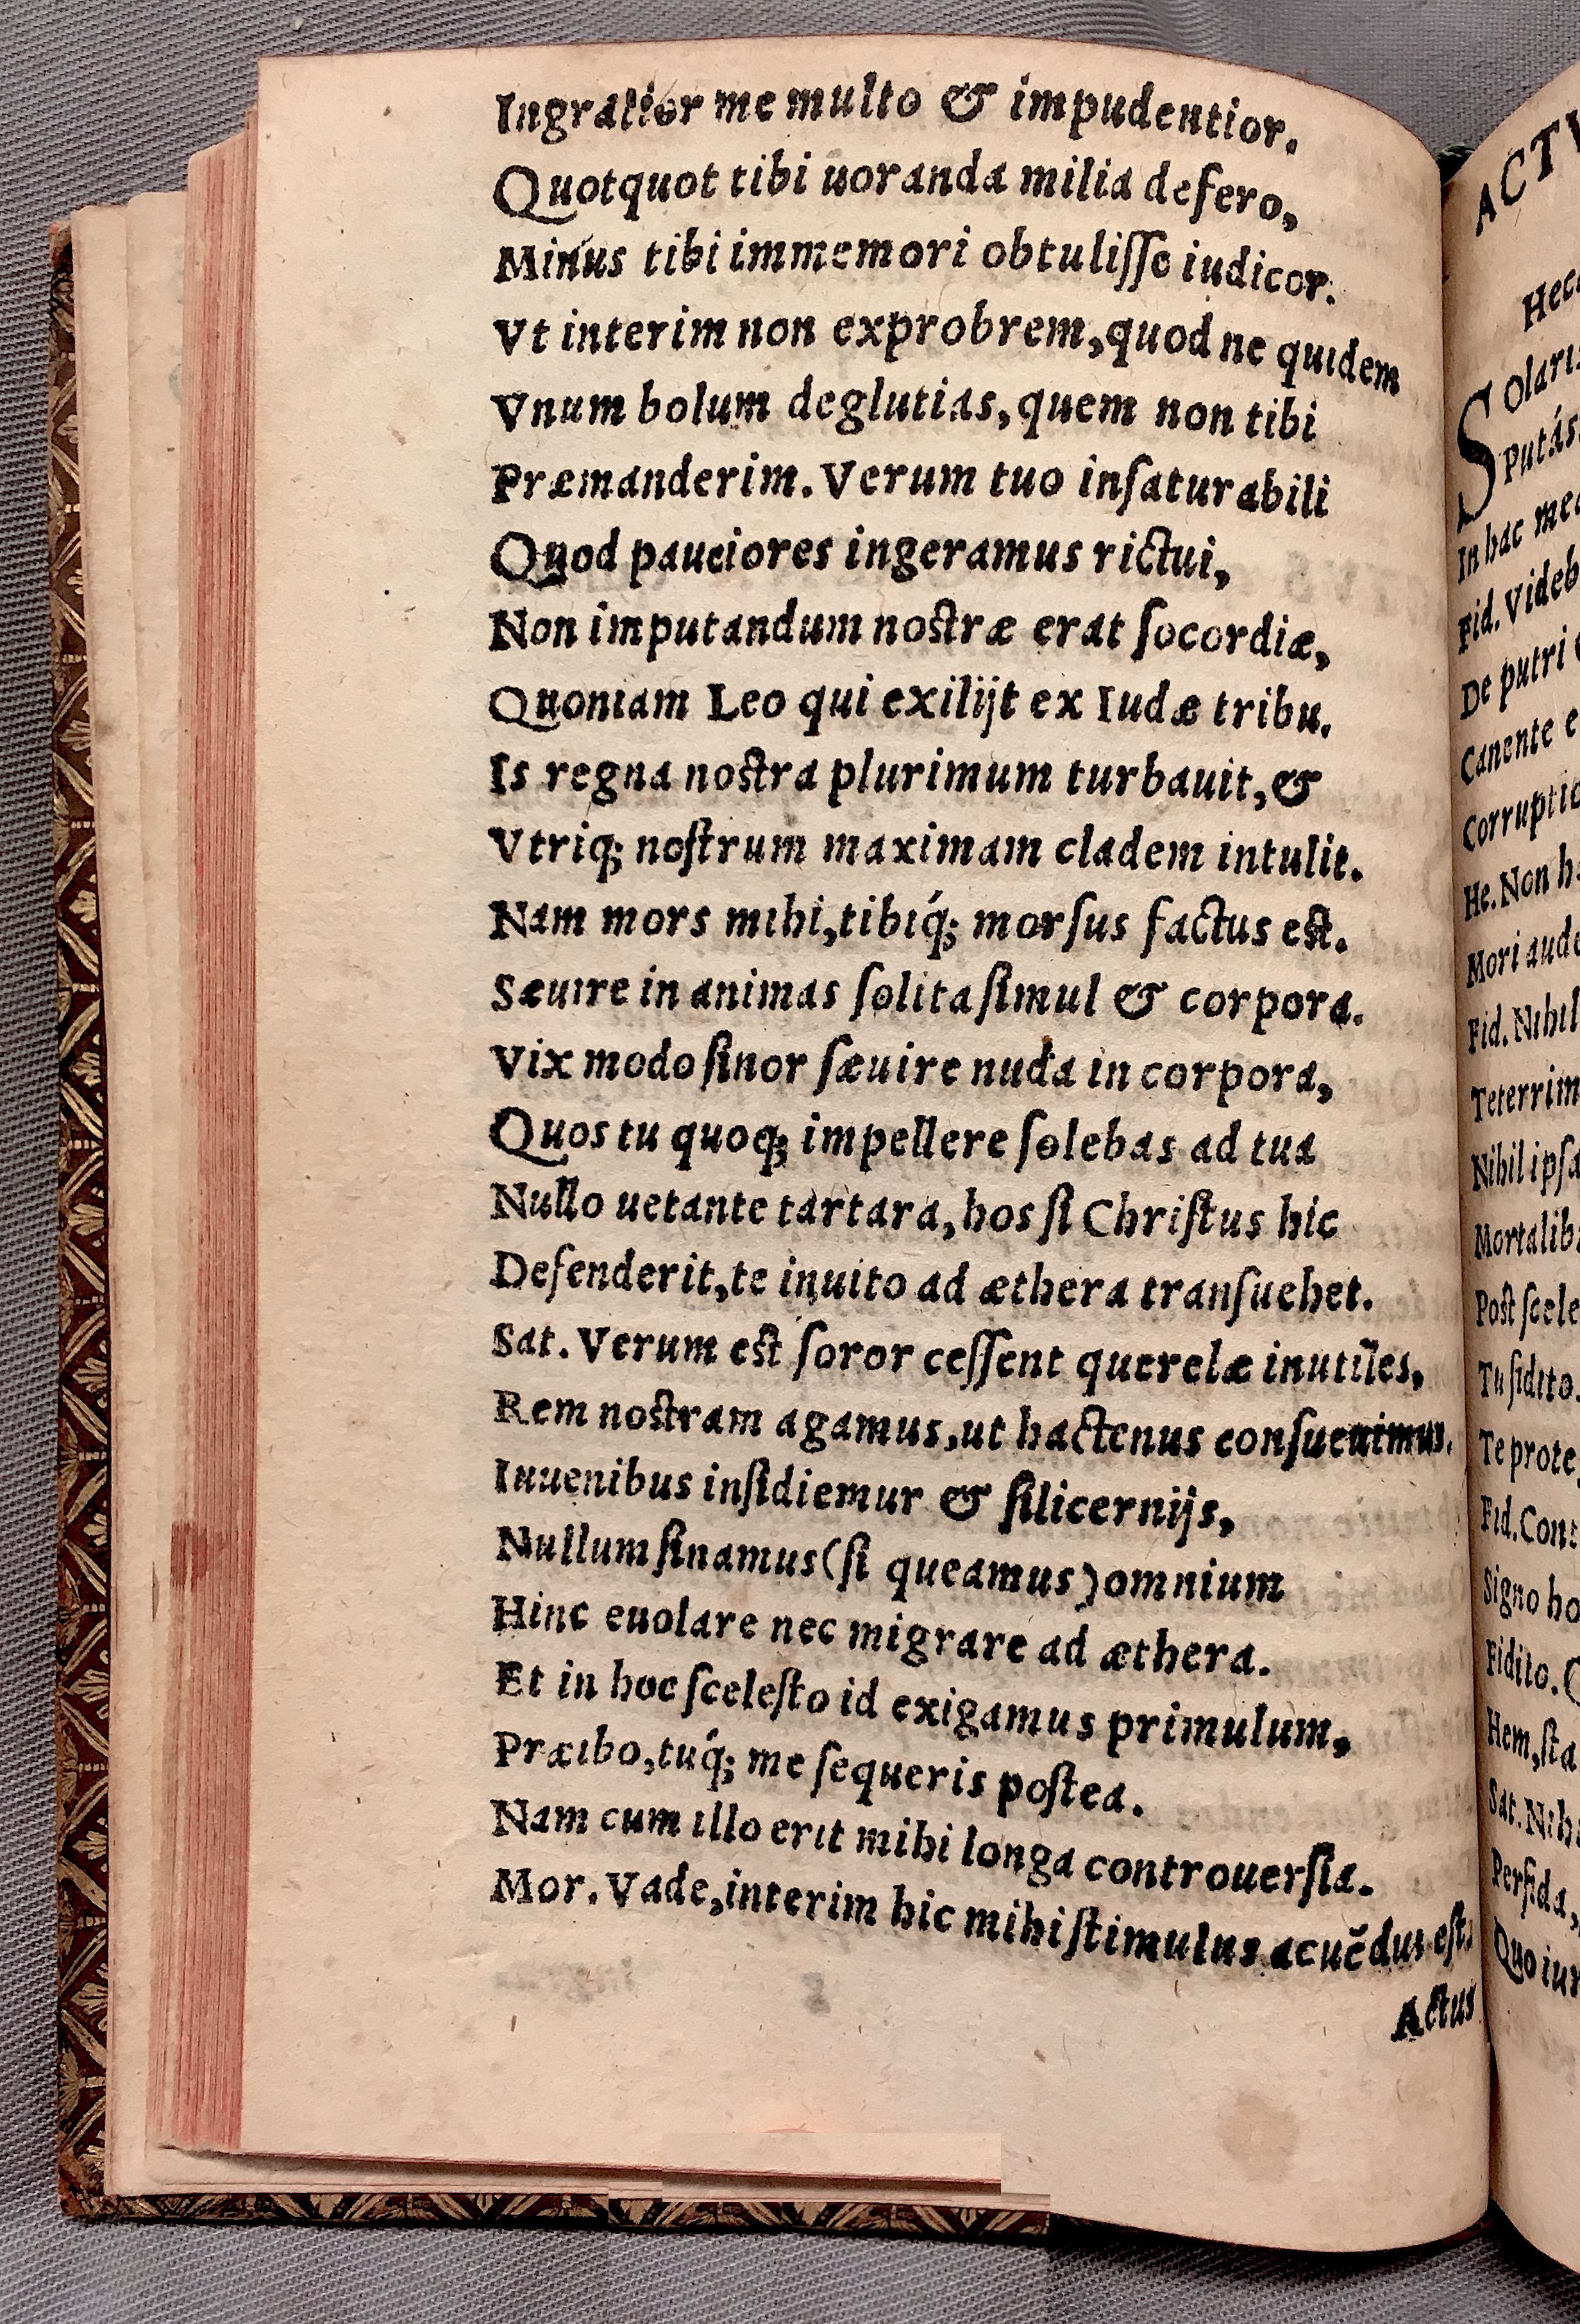 Ingratior me multo & impudentior.
Quotquot tibi uoranda milia defero,
Minus tibi immemori obtulisse iudicor.
Vt interim non exprobrem, quod ne quidem
Vnum bolum deglutias, quem non tibi
Præmanderim. Verum tuo insaturabili
Quod pauciores ingeramus rictui,
Non imputandum nostræ erat socordiæ,
Quoniam Leo qui exilijt ex Iudæ tribu.
Is regna nostra plurimum turbauit, &
Vtriq; nostrum maximam cladem intulit.
Nam mors mihi, tibiq́; morsus factus est.
Sæuire in animas solita simul & corpora.
Vix modo sinor sæuire nuda in corpora,
Quos tu quoq; impellere solebas ad tua
Nullo uetante tartara, hos si Christus hic
Defenderit, te inuito ad æthera transuehet.
Sat. Verum est soror cessent querelæ inutiles,
Rem nostram agamus, ut hactenus consueuimus.
Iuuenibus insidiemur & silicernijs,
Nullum sinamus (si queamus) omnium
Hinc euolare nec migrare ad æthera.
Et in hoc scelesto id exigamus primulum,
Præibo, tuq́; me sequeris postea.
Nam cum illo erit mihi longa controuersia.
Mor. Vade, interim hic mihi stimulus acuẽdus est.
Actus
ACTV
Hec
Solari
Putás
In hac me
Fid. Videb
De putri
Canente e
Corruptio
He. Non h
Mori aude
Fid. Nihil
Teterrim
Nihil ipsa
Mortalib
Post scele
Tu fidito.
Te prote
Fid. Cont
Signo ho
Fidito.
Hem, sta
Sat. Nih
Perfida,
Quo iur